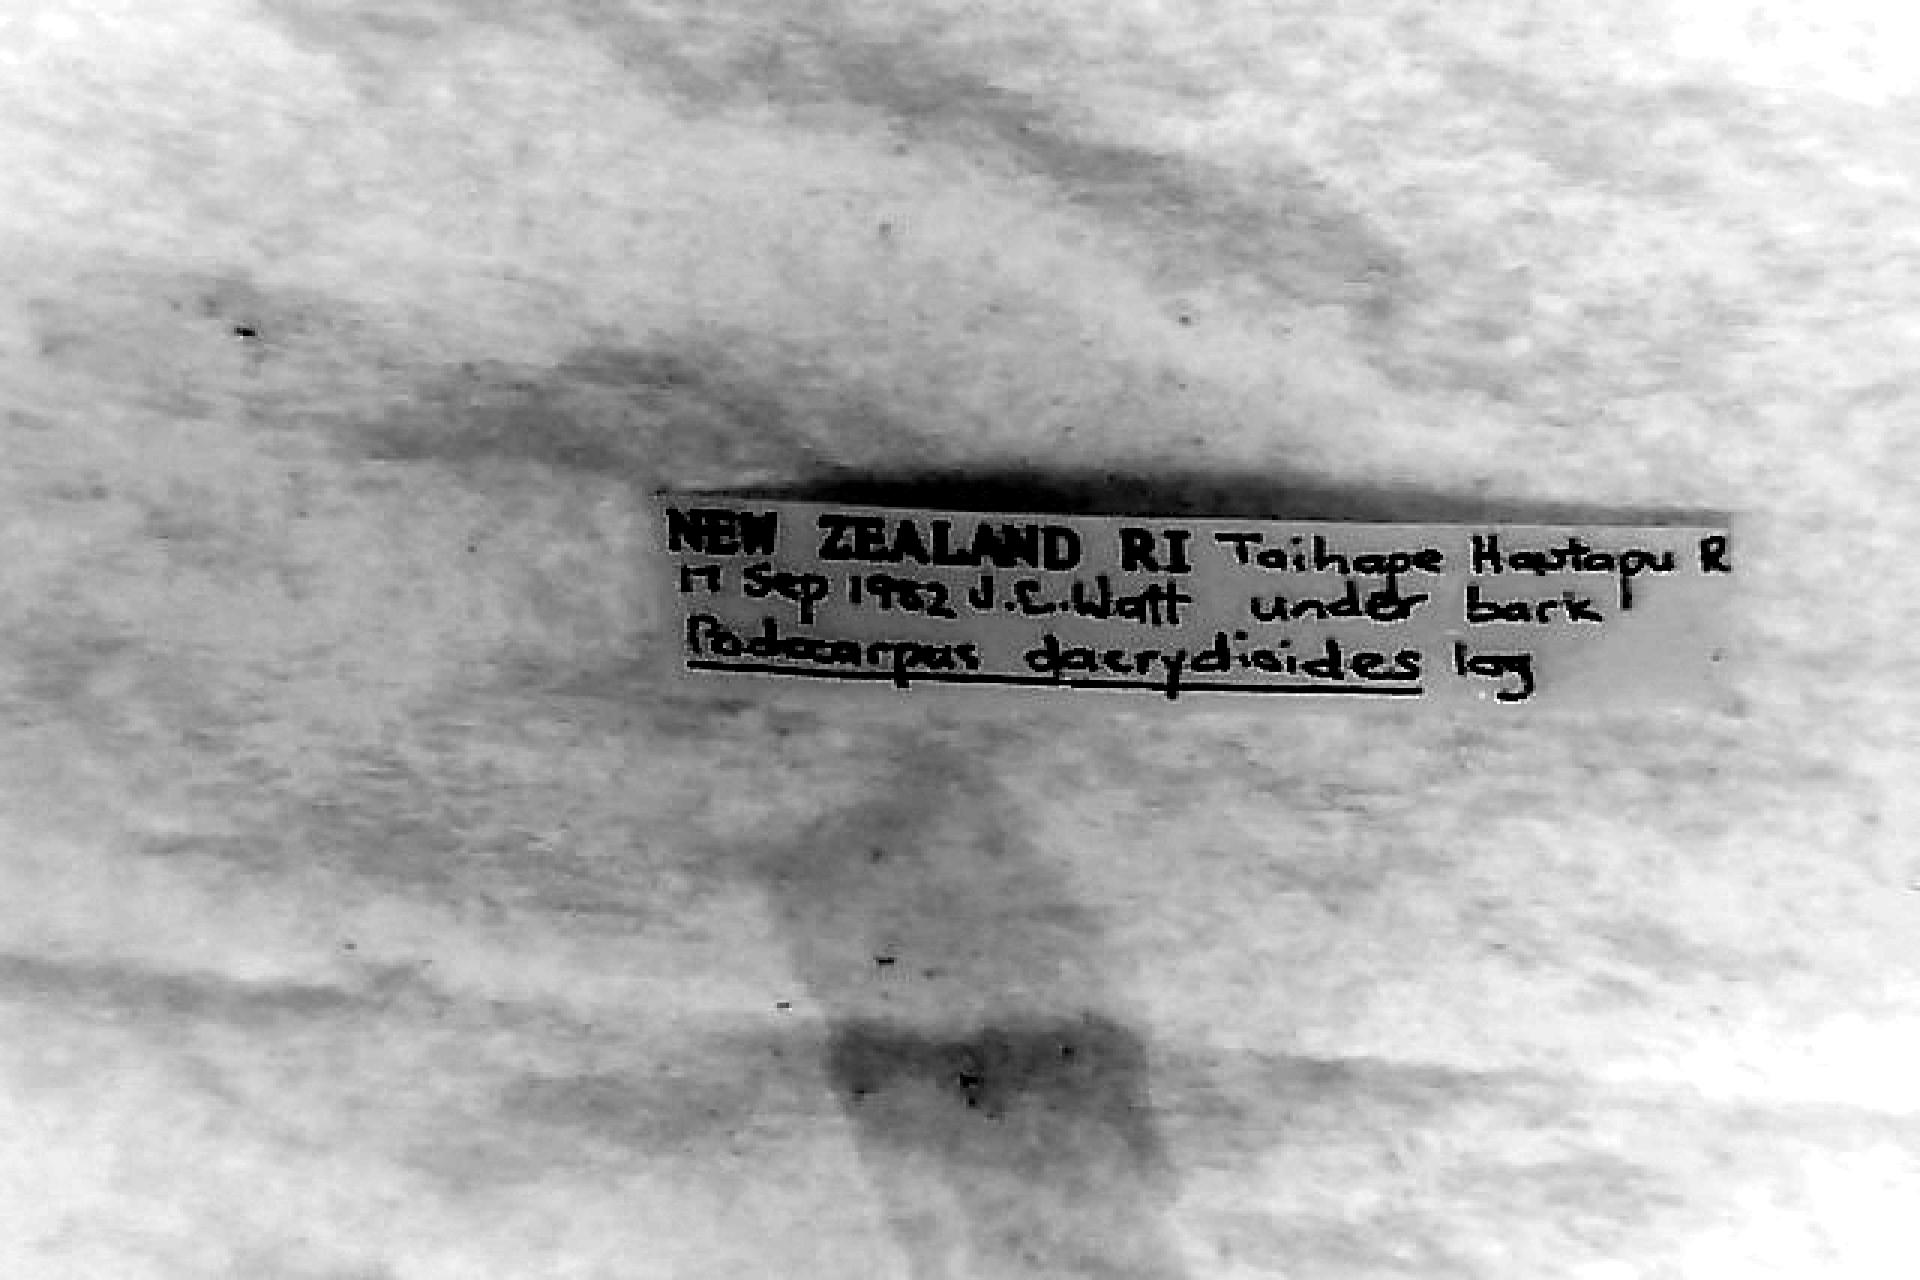 NEW ZEALAND RI Taihape Hautapu R
Sep 1982 J.C.Watt under bark
Podocarpus dacrydioides log